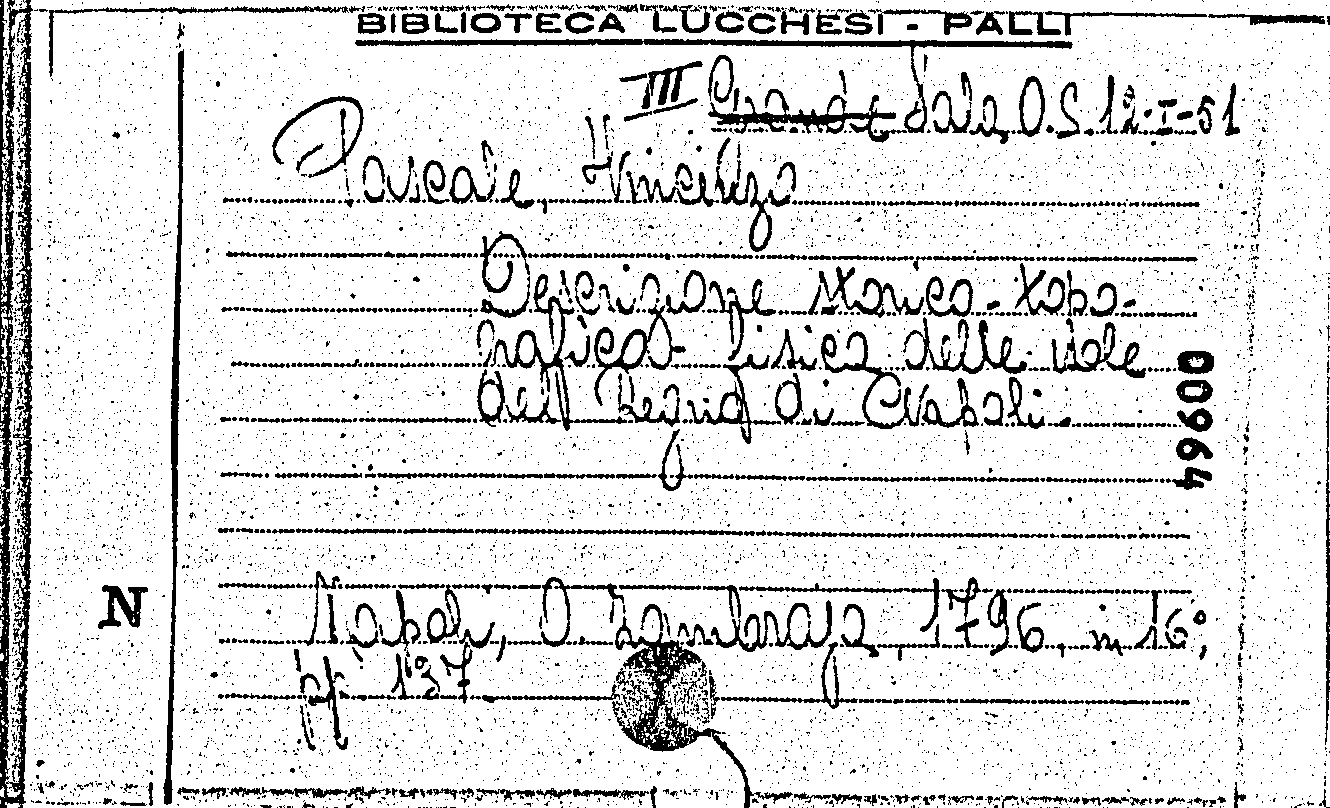 BIBLIOTECA LUCCHESI - PALLI
III Grande Sala O.S. 12-I-51
Pascale, Vincenzo
Descrizione storico-topo-
grafico-fisica delle isole
dell Regno di Napoli.
00964
N
Napoli, D. Zambraja, 1796, in 16°,
pp. 137